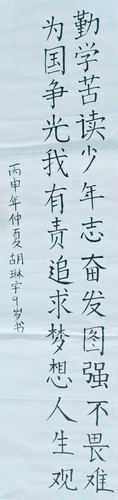 勤学苦读少年志奋发图强不畏难
为国争光我有责追求梦想人生观
丙申年仲夏胡琳宇9岁书